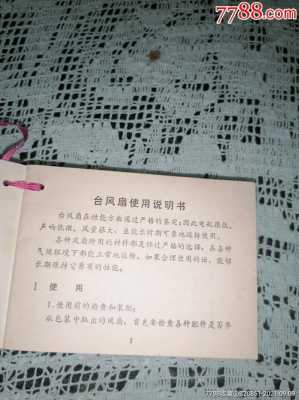 7788.com
台风扇使用说明书
台风扇在性能方面通过严格的鉴定;因此电机强极,
声响低微,风量极大,且能长时期可靠地运转使用。
各种风扇所用的材料都是经过严格的选择,在各种
气候环境下都能正常地运转,如果合理使用的话,能够
长期保持它原有的性能。
1 使用
1.使用前的检查和装配:
从包装中取出的风扇,首先要检查各种配件是否齐
1